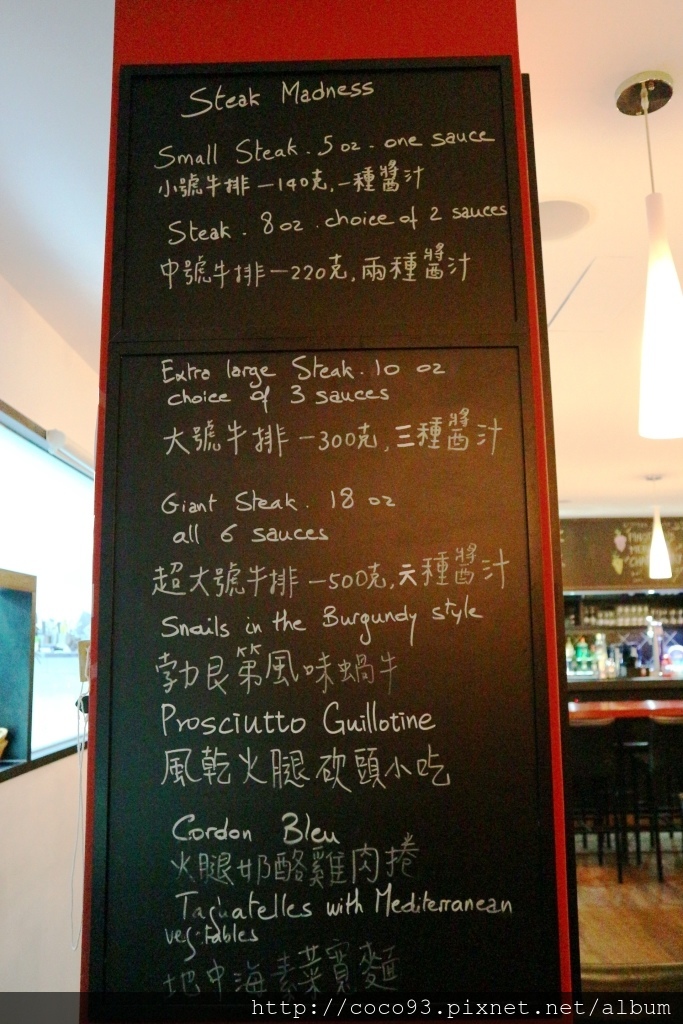 Steak Madness
Small Steak. 5 oz. one sauce
小號牛排—140克,一種醬汁
Steak. 8 oz. choice of 2 sauces
中號牛排—220克,兩種醬汁
Extra large Steak. 10 oz
choice of 3 sauces
大號牛排—300克,三種醬汁
Giant Steak. 18 oz
all 6 sauces
超大號牛排—500克,六種醬汁
Snails in the Burgundy style
勃艮第風味蝸牛
Prosciutto Guillotine
風乾火腿砍頭小吃
Cordon Bleu
火腿奶酪雞肉捲
Tagliatelles with Mediterranean
vegetables
地中海素菜寬麵
http://coco93.pixnet.net/album